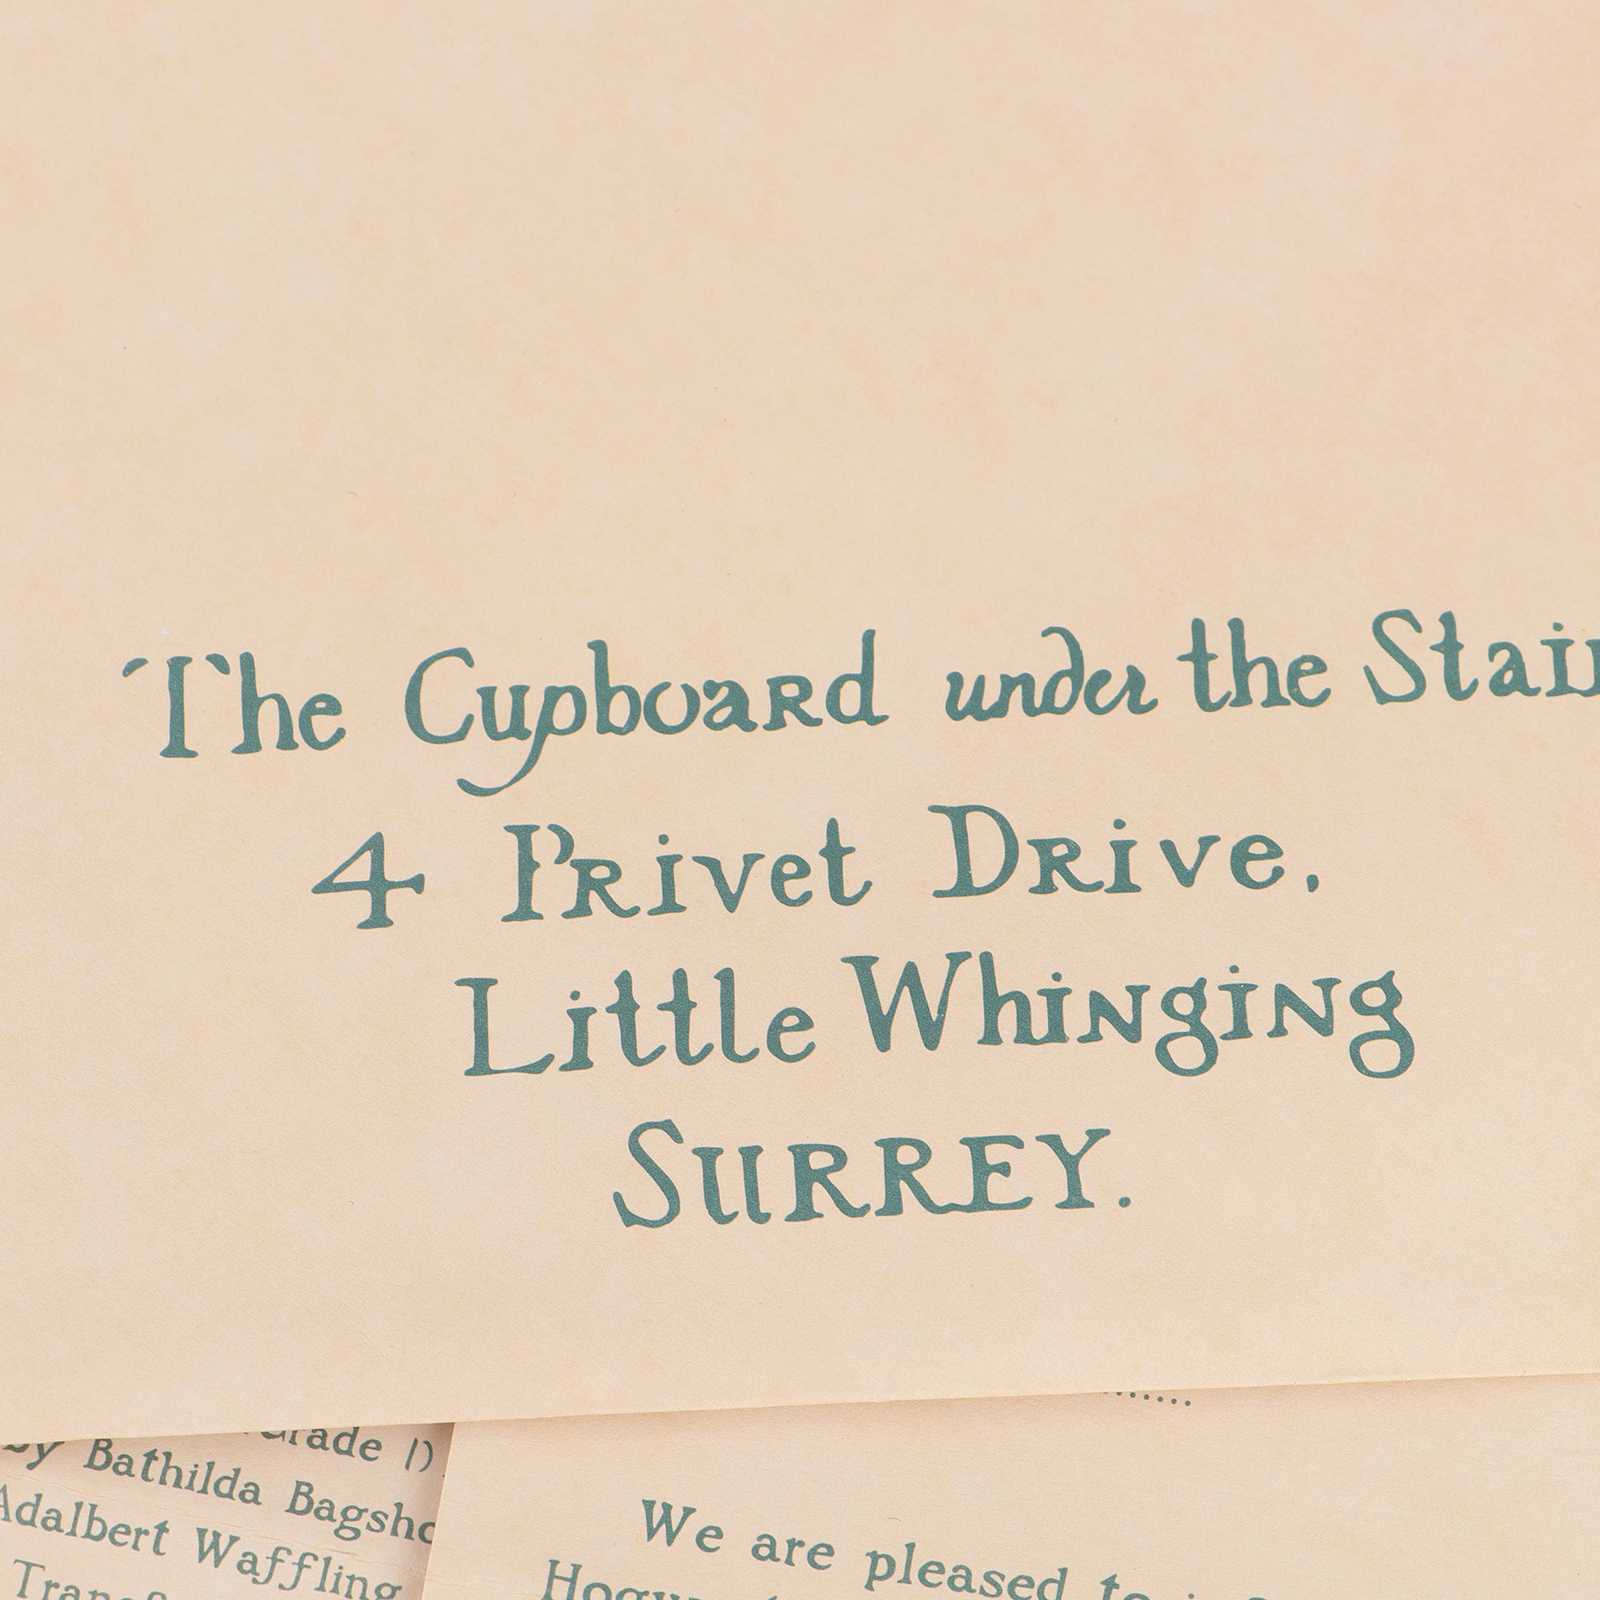 The Cupboard under the
4 Privet Drive,
Little Whinging
SURREY.
by Bathilda
Adalbert Waffling
We are pleased to